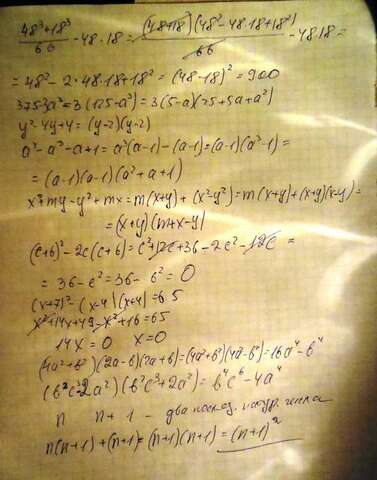 (48³+18³)/66 - 48·18 = (48+18)(48²-48·18+18²)/66 - 48·18 =
= 48² - 2·48·18 + 18² = (48-18)² = 900
375-3a³ = 3(125-a³) = 3(5-a)(25+5a+a²)
y²-4y+4 = (y-2)(y-2)
a³-a²-a+1 = a²(a-1)-(a-1) = (a-1)(a²-1) =
= (a-1)(a-1)(a²+a+1)
x²+my-y²+mx = m(x+y)+(x²-y²) = m(x+y)+(x+y)(x-y) =
= (x+y)(m+x-y)
(c+6)²-2c(c+6) = c²+12c+36-2c²-12c =
= 36-c² = 36-6² = 0
(x+7)²-(x-4)(x+4) = 65
x²+14x+49-x²+16 = 65
14x = 0 x = 0
(4a²+b²)(2a-b)(2a+b) = (4a²+b²)(4a²-b²) = 16a⁴-b⁴
(b²c³-2a²)(b²c³+2a²) = b⁴c⁶-4a⁴
n n+1 - два послед. натур. числа
n(n+1)+(n+1) = (n+1)(n+1) = (n+1)²